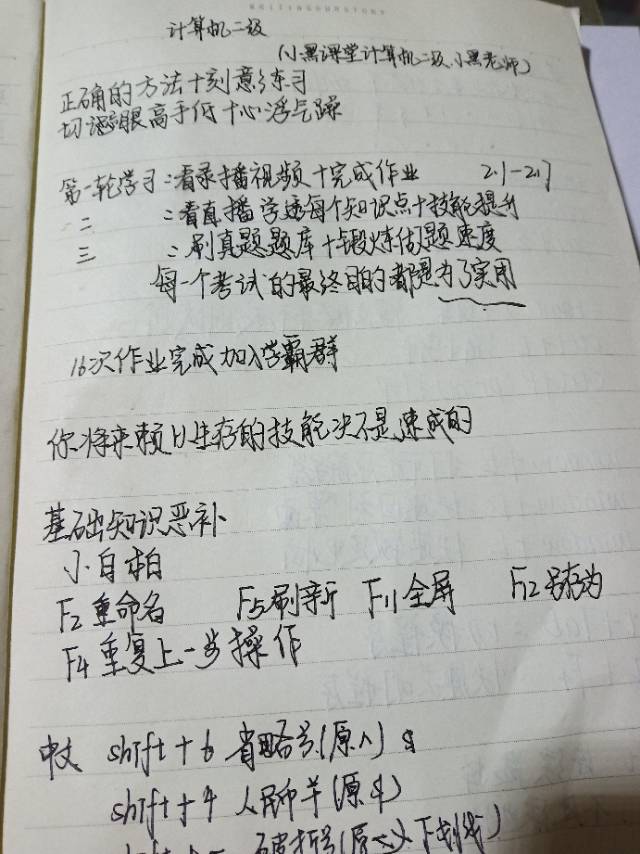 WRITINGOURSTORY
计算机二级
(小黑课堂计算机二级.小黑老师)
正确的方法+刻意练习
切记眼高手低+心浮气躁
第一轮学习:看录播视频+完成作业 2.1-2.7
二 :看直播学透每个知识点+技能提升
三 :刷真题题库+锻炼做题速度
每一个考试的最终目的都是为了实用
16次作业完成加入学霸群
你将来赖以生存的技能决不是速成的
基础知识恶补
小白拍
F2重命名 F5刷新 F11全屏 F12另存为
F4重复上一步操作
中文 shift+6 省略号(原^)
shift+4 人民币羊(原$)
破折号(原一义下划线)